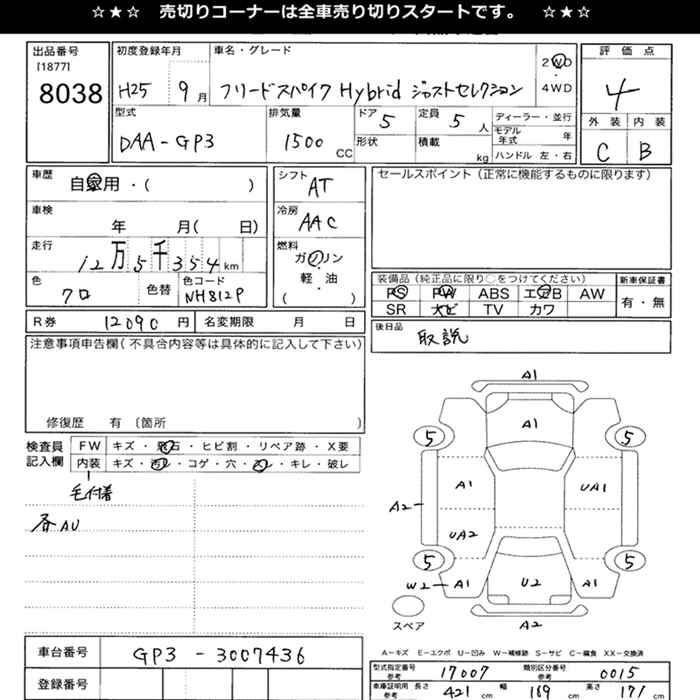 ☆★☆ 売切りコーナーは全車売り切りスタートです。 ☆★☆
出品番号
[1877]
8038
初度登録年月
H25 9月
車名・グレード
フリードスパイク Hybrid ジャストセレクション
2WD
4WD
評価点
4
外装 内装
C B
型式
DAA-GP3
排気量
1500 CC
ドア 5
形状
定員 5 人
積載 kg
ディーラー・並行
モデル年式 年
ハンドル 左・右
車歴
自家用・( )
車検
年 月( 日)
走行
12万5千354km
色
クロ
色替
色コード
NH812P
シフト
AT
冷房
AAC
燃料
ガソリン
・
軽・油
( )
セールスポイント(正常に機能するものに限ります)
装備品(純正品に限り○をつけてください) 新車保証書
PS PW ABS エアB AW 有・無
SR ナビ TV カワ
R券 12090円 名変期限 月 日
後日品
取説
注意事項申告欄(不具合内容等は具体的に記入して下さい)
修復歴 有〔箇所 〕
検査員
記入欄
FW キズ・飛石・ヒビ割・リペア跡・X要
内装 キズ・汚レ・コゲ・穴・スレ・キレ・破レ
毛付着
各AU
A1
A1
5 5
A1 UA1
A2
UA2
5 5
W2 A1 U2 A1
スペア
A2
A-キズ E-エクボ U-凹み W-補修跡 S-サビ C-腐食 XX-交換済
車台番号 GP3-3007436
登録番号
型式指定番号 参考 17007 類別区分番号 参考 0015
車庫証明用 参考 長さ 421 cm 幅 169 cm 高さ 171 cm